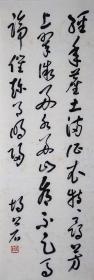 經年塵土滿征衣特特尋芳
上翠微好水好山看不足馬
蹄催趁月明歸 胡公石